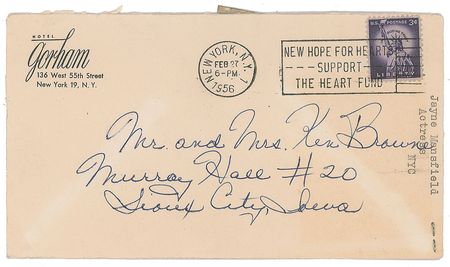 HOTEL
Gorham
136 West 55th Street
New York 19, N. Y.
NEW YORK, N.Y. 1
FEB 27
6-PM
1956
NEW HOPE FOR HEARTS
SUPPORT
THE HEART FUND
U.S. POSTAGE 3¢
LIBERTY
Mr. and Mrs. Ken Browne
Murray Hall #20
Sioux City, Iowa
Jayne Mansfield
Actress
NYC